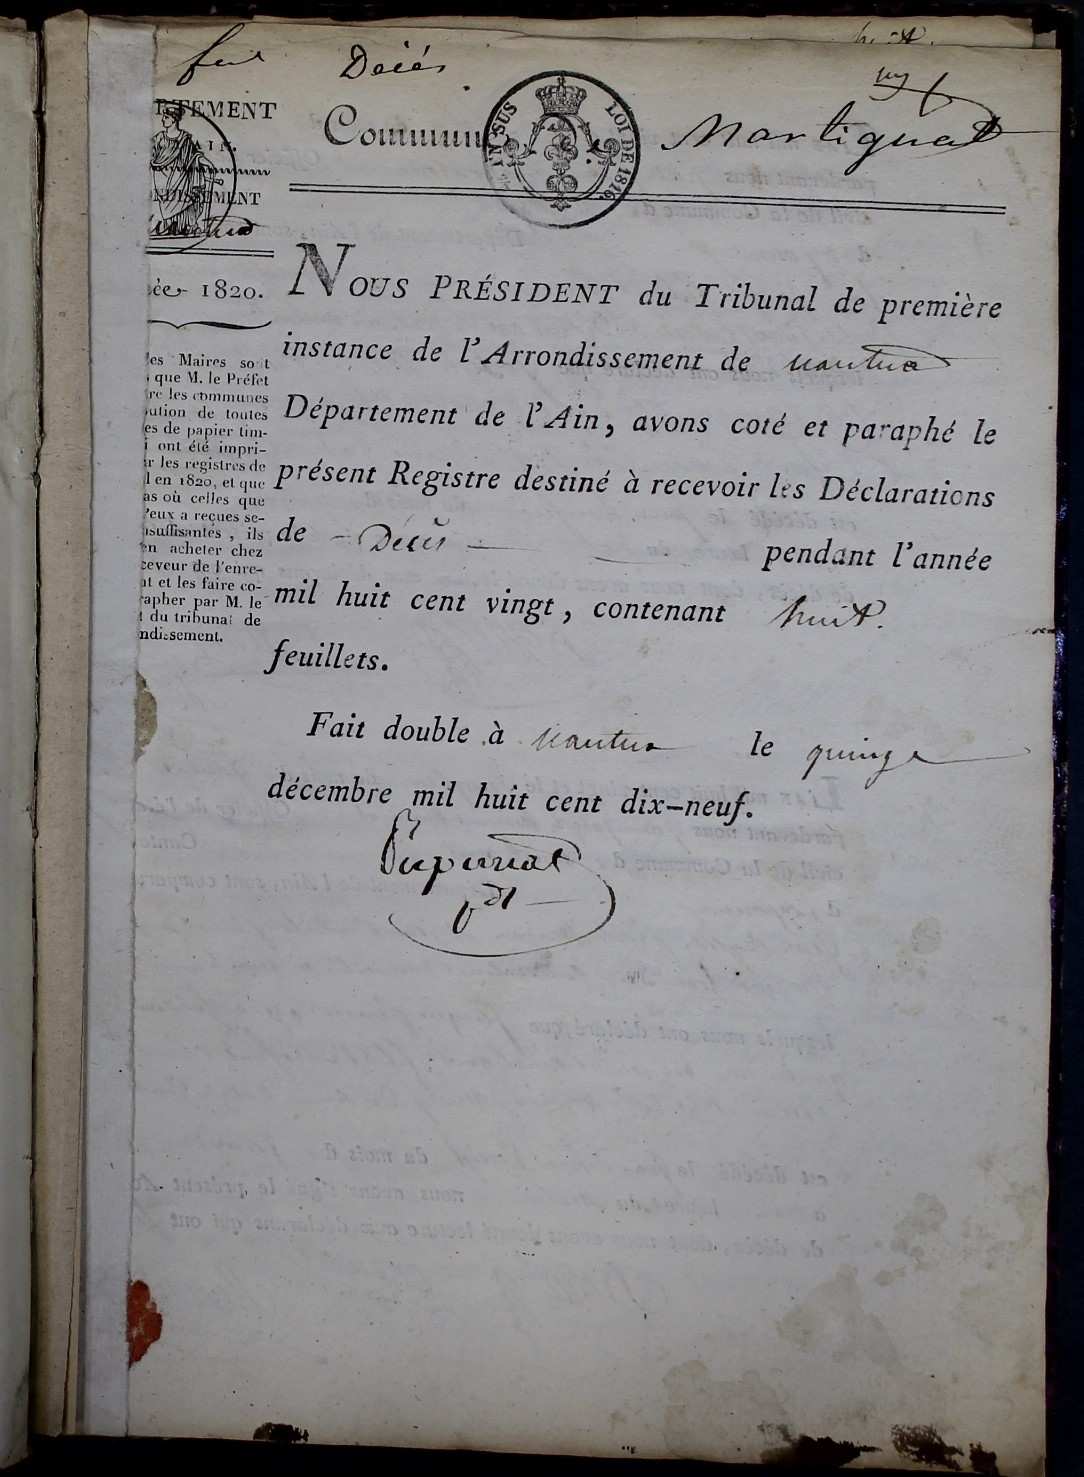 Décès
huit.
RTEMENT
AIN.
ONDISSEMENT
Nantua
Commune
IN SUS
LOI DE 1816.
Martignat
ée 1820.
les Maires sont
que M. le Préfet
re les communes
bution de toutes
es de papier tim-
i ont été impri-
ur les registres de
l en 1820, et que
as où celles que
l'eux a reçues se-
nsuffisantes, ils
en acheter chez
ceveur de l'enre-
nt et les faire co-
rapher par M. le
t du tribunal de
ndissement.
NOUS PRÉSIDENT du Tribunal de première
instance de l'Arrondissement de Nantua
Département de l'Ain, avons coté et paraphé le
présent Registre destiné à recevoir les Déclarations
de - Décès - pendant l'année
mil huit cent vingt, contenant huit.
feuillets.
Fait double à Nantua le quinze
décembre mil huit cent dix-neuf.